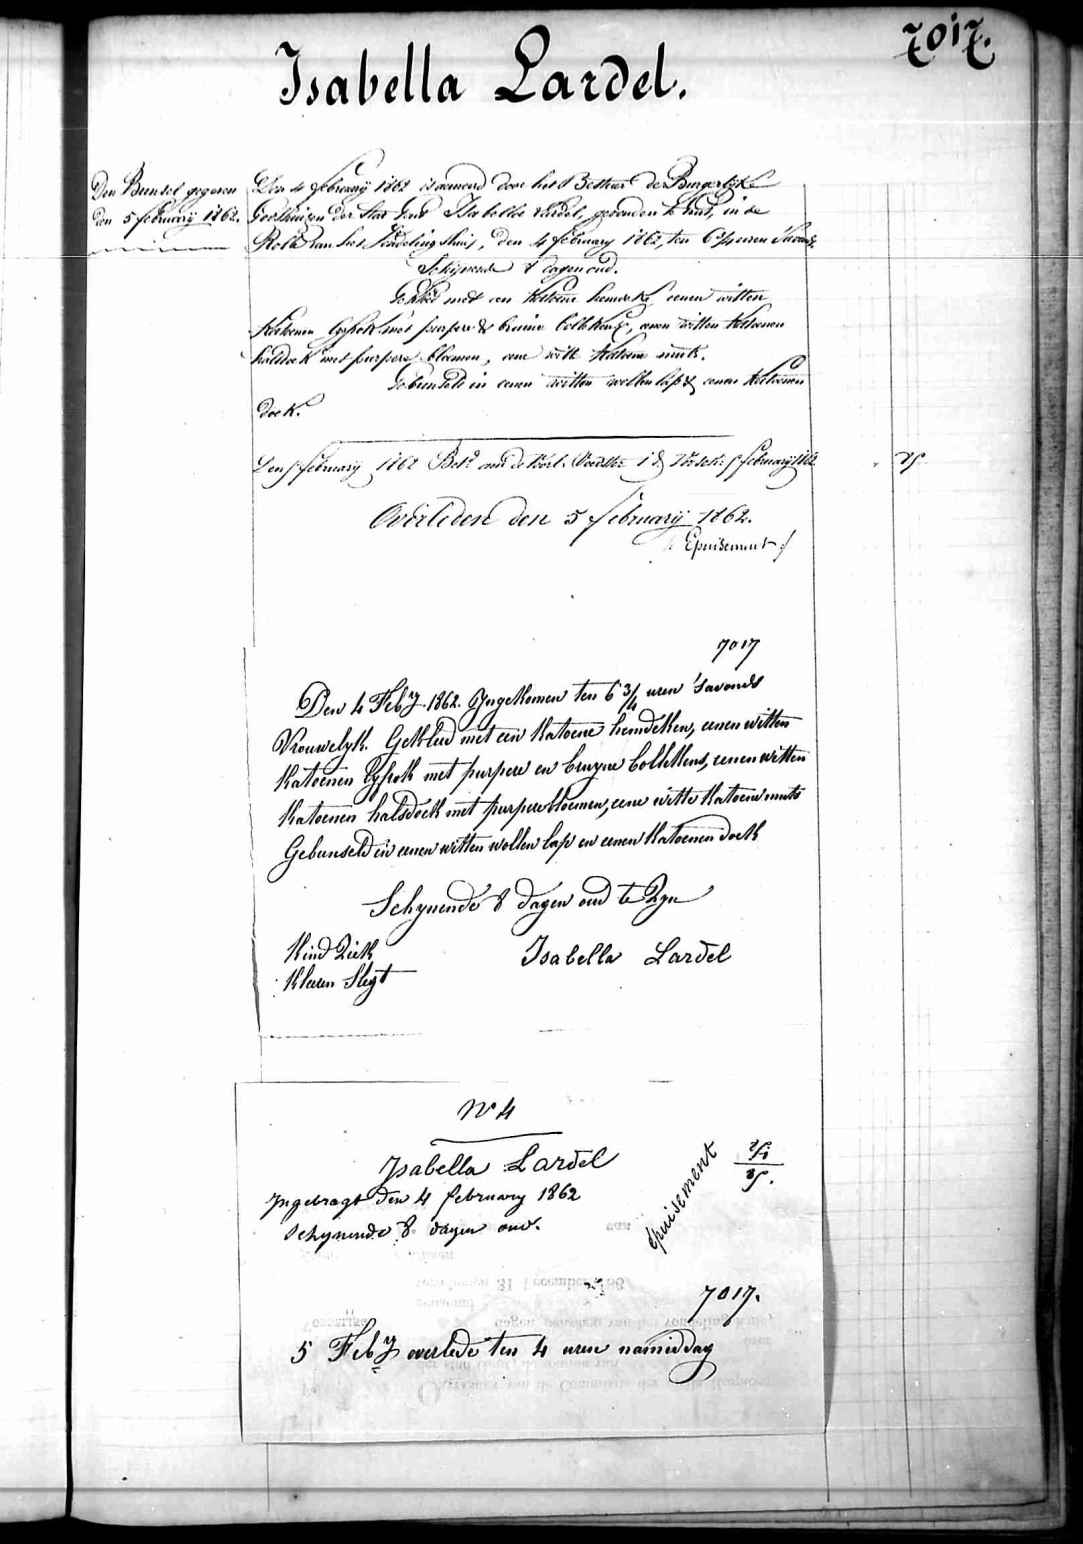 7017.
Isabella Lardel.
Den Bunsel gegeven
den 5 february 1862.
Den 4 february 1862 is genoemd door het Bestuer de Burgerlijke
Godshuizen der Stad Gend Isabella Lardel, gevonden te Gent, in de
Rolle van het Vondelingshuis, den 4 february 1862, ten 6 3/4 uren 'savonds
Schijnende 8 dagen oud.
Gekleed met een katoene hemdeke, eenen witten
katoenen lyfrok met purpere & bruine bollekens, eenen witten katoenen
halsdoek met purpere bloemen, eene witte katoene muts.
Gebunseld in eenen witten wollen lap & eenen katoenen
doek.
Den 5 february 1862 february 1862
Overleden den 5 february 1862.
Epuisement
7017
Den 4 Feby 1862. Ingekomen ten 6 3/4 uren 'savonds
Vrouwelyk. Gekleed met een katoene hemdeken, eenen witten
katoenen lyfrok met purpere en bruyne bollekens, eenen witten
katoenen halsdoek met purpere bloemen, eene witte katoene muts
Gebunseld in eenen witten wollen lap en eenen katoenen doek
Schynende 8 dagen oud te Zyn
Kind Ziek
Isabella Lardel
Kleeren Slegt
N° 4
Isabella Lardel
Ingebragt den 4 february 1862
schynende 8 dagen oud.
épuisement
7017.
5 Feby overlede ten 4 uren namiddag